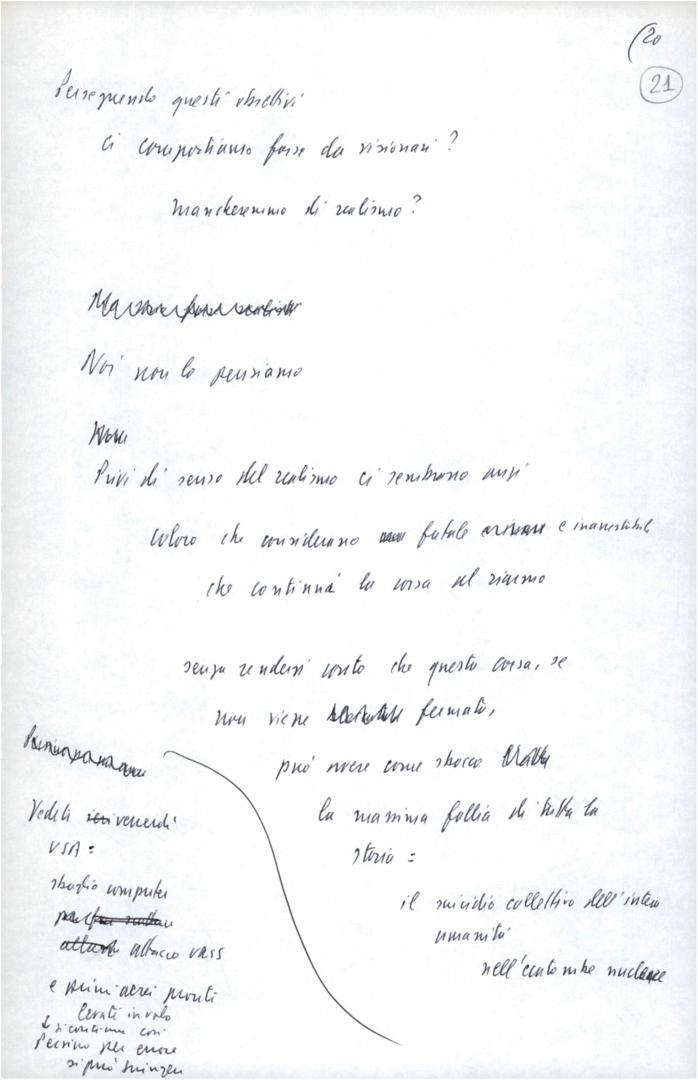 (20
21
Perseguendo questi obiettivi
ci comportiamo forse da visionari?
Mancheremmo di realismo?
Noi non lo pensiamo
Privi di senso del realismo ci sembrano anzi
coloro che considerano fatale e inarrestabile
che continui la corsa al riarmo
senza rendersi conto che questa corsa, se
non viene fermata,
può avere come sbocco
la massima follia di tutta la
storia:
il suicidio collettivo dell'intera
umanità
nell'ecatombe nucleare
Vedi venerdì
USA:
sbaglio computer
attacco URSS
e primi aerei pronti
levati in volo
Se si continua così
Persino per errore
si può giungere